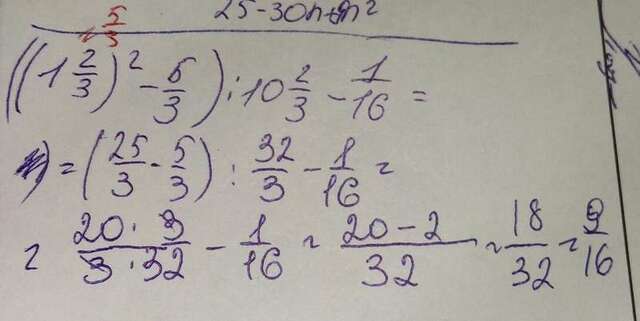 25-30n+9n²
5/3
((1 2/3)² - 5/3) : 10 2/3 - 1/16 =
= (25/3 - 5/3) : 32/3 - 1/16 =
= 20·3/3·32 - 1/16 = 20-2/32 = 18/32 = 9/16